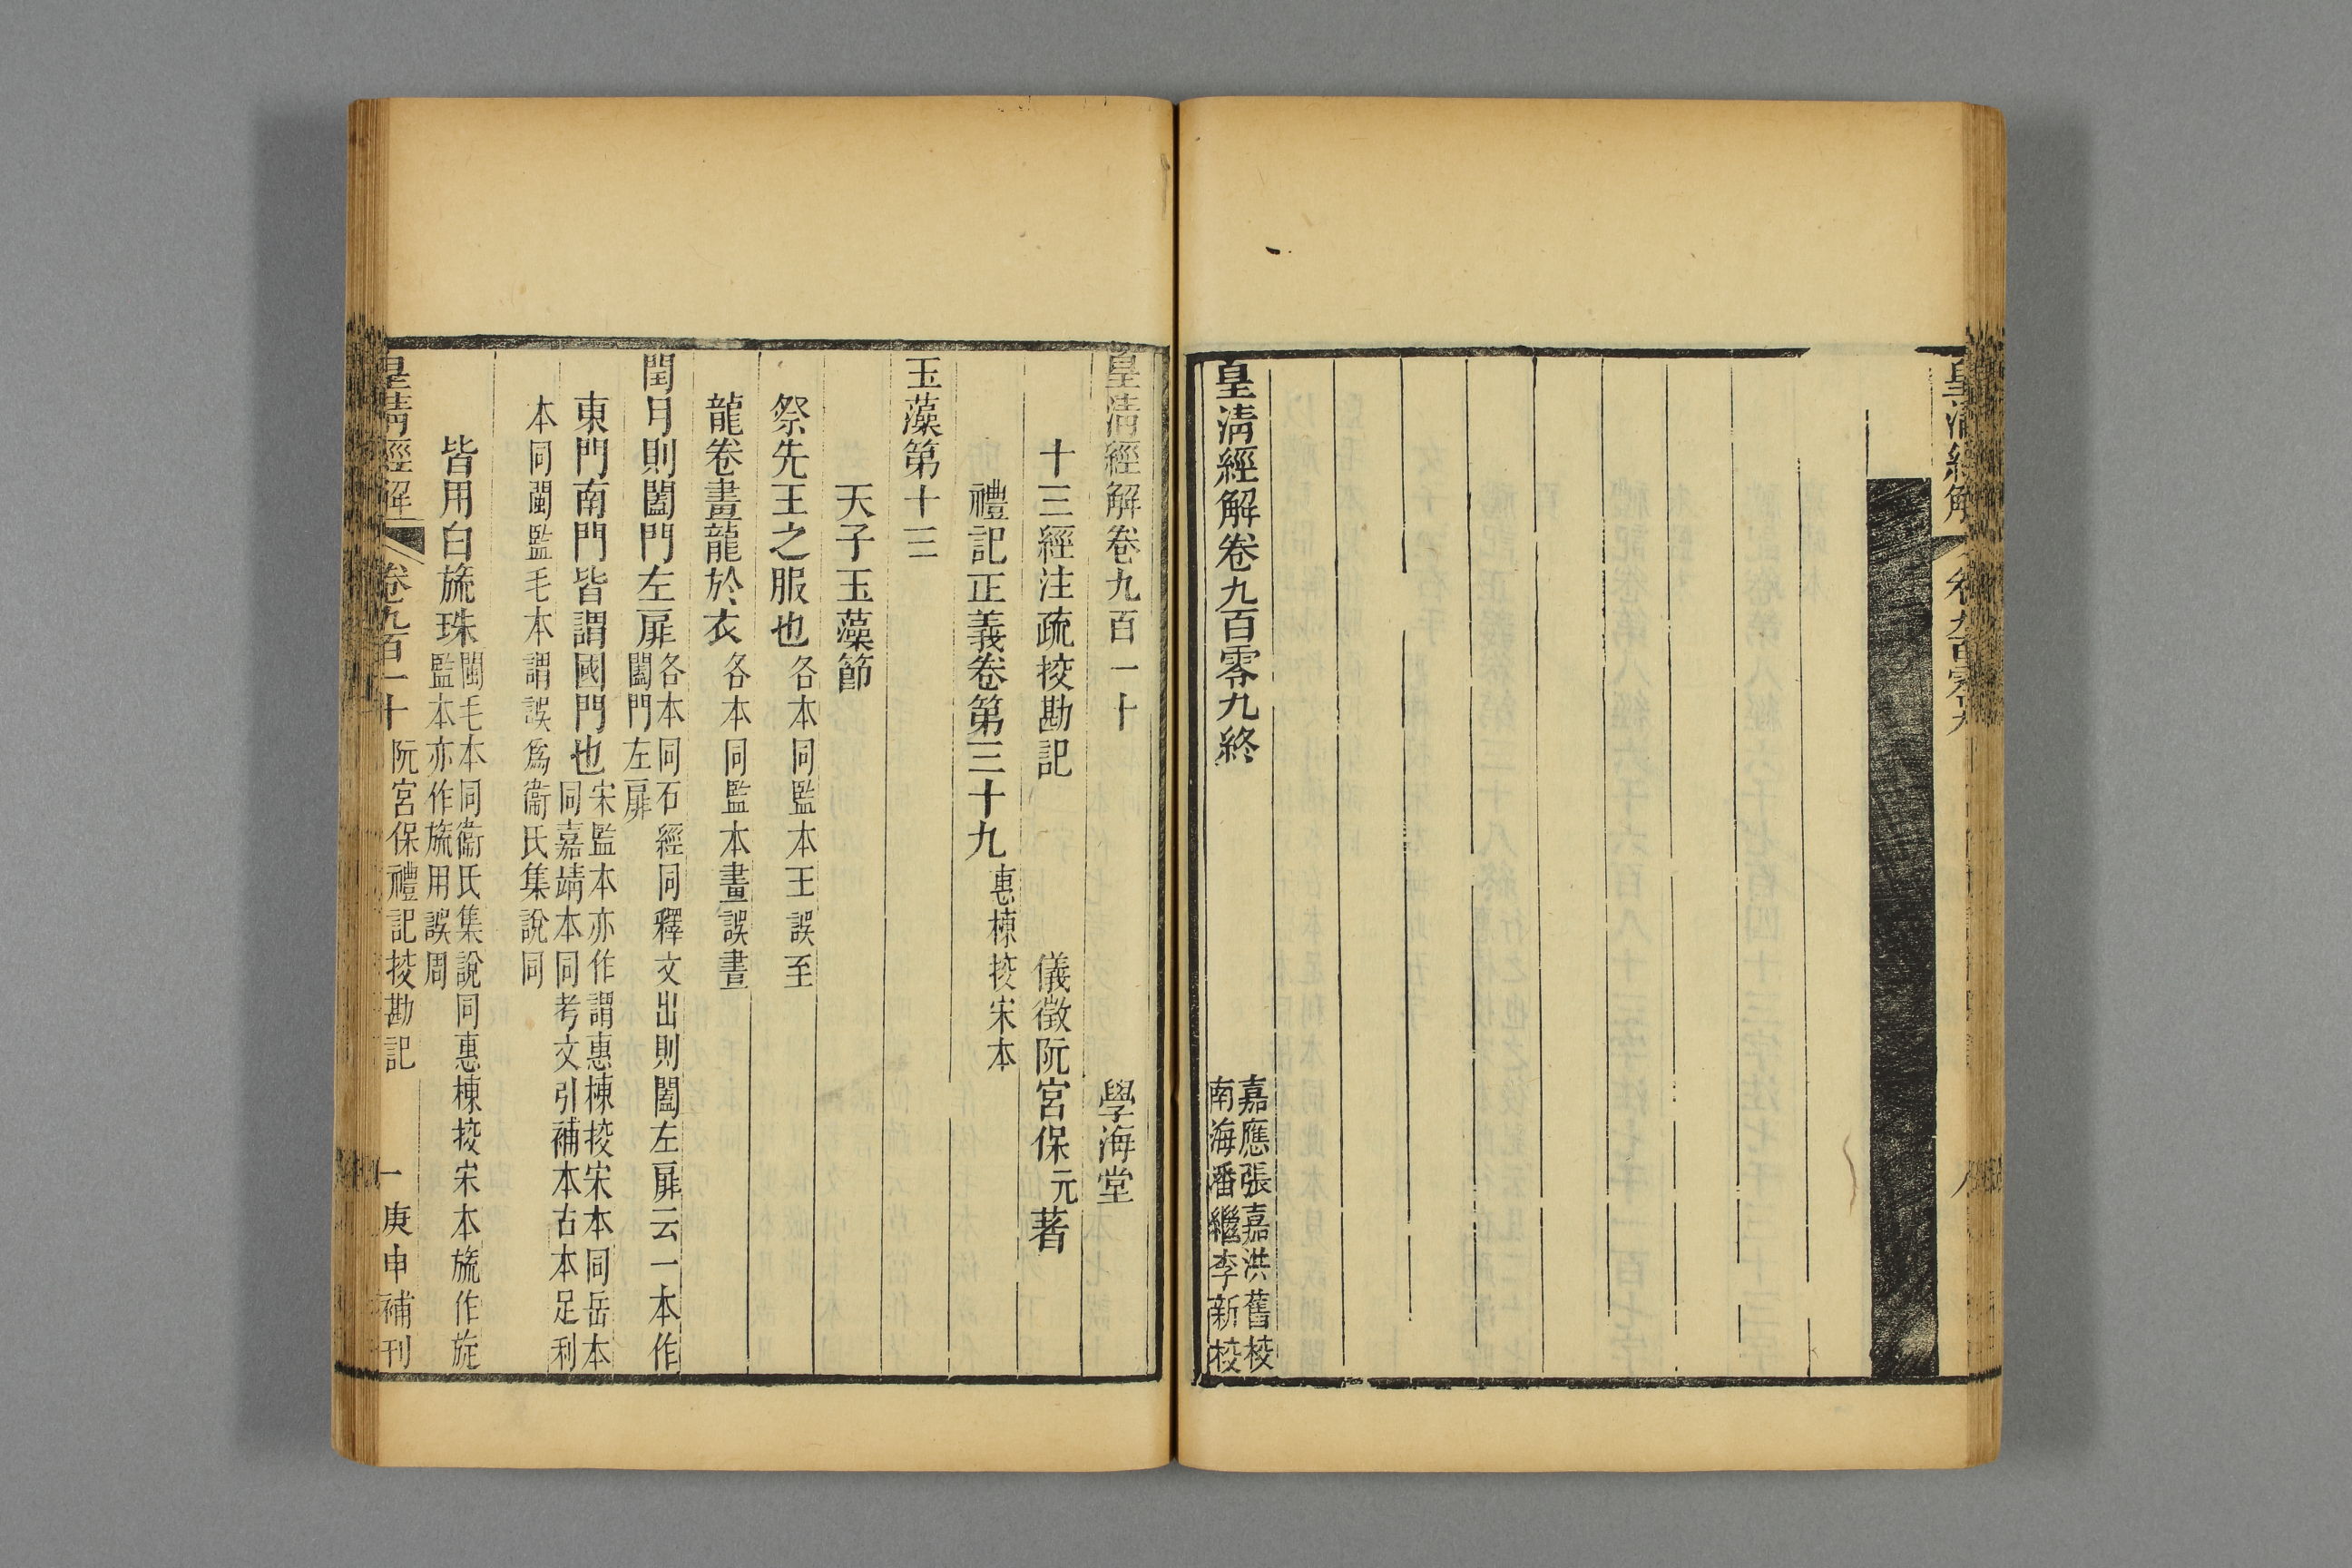 皇清經解
卷九百零九
皇清經解卷九百零九終
嘉應張嘉洪舊校
南海潘繼李新校
皇清經解卷九百一十
學海堂
十三經注疏挍勘記
儀徵阮宮保元著
禮記正義卷第三十九
惠棟挍宋本
玉藻第十三
天子玉藻節
祭先王之服也
各本同監本王誤至
龍卷畫龍於衣
各本同監本畫誤晝
閏月則闔門左扉
各本同石經同釋文出則闔左扉云一本作
闔門左扉
東門南門皆謂國門也
宋監本亦作謂惠棟挍宋本同岳本
同嘉靖本同考文引補本古本足利
本同閩監毛本謂誤爲衞氏集說同
皆用白旒珠
閩毛本同衞氏集說同惠棟挍宋本旒作旈
監本亦作旒用誤周
皇清經解
卷九百一十
阮宮保禮記挍勘記
一
庚申補刊